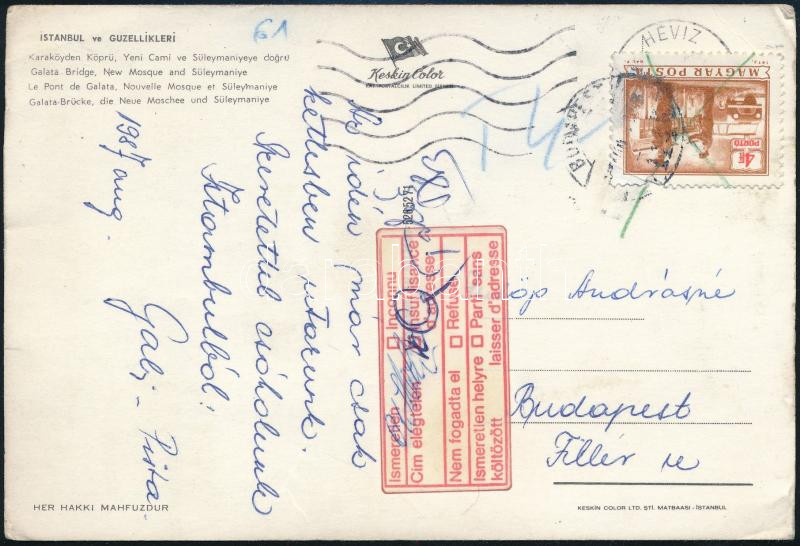 İSTANBUL ve GUZELLİKLERİ
Karaköyden Köprü, Yeni Cami ve Süleymaniyeye doğru
Galata Bridge, New Mosque and Süleymaniye
Le Pont de Galata, Nouvelle Mosque et Süleymaniye
Galata-Brücke, die Neue Moschee und Süleymaniye
61
Keskin Color
HEVIZ
BUDAPEST
MAGYAR POSTA
4F
PORTO
1987 aug.
Az idén már csak
kettesben utazunk.
Szeretettel csókolunk
Isztambulból:
Gabi - Pista
Ismeretlen Inconnu
Cím elégtelen Insuffisance
d'adresse
Nem fogadta el Refusé
Ismeretlen helyre Parti sans
költözött laisser d'adresse
Andrásné
Budapest
Fillér u
HER HAKKI MAHFUZDUR
KESKİN COLOR LTD. ŞTİ. MATBAASI - İSTANBUL